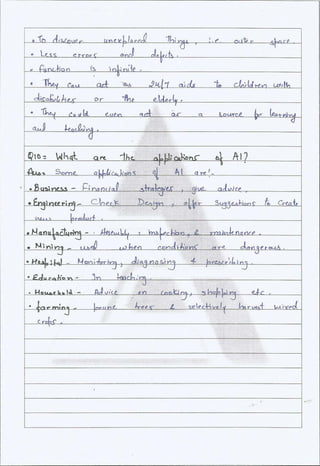 • To discover unexplored things, i.e outer space.
• Less errors and defects.
• Function is infinite.
• They can act as 24/7 aids to children with
disabilities or the elderly.
• They could even act as a source for learning
and teaching.
Q10: What are the applications of AI?
Ans Some applications of AI are:
• Business - Financial strategies, give advice.
• Engineering - Check Design, offer Suggestions to Create
new product.
• Manufacturing - Assembly, inspection, & maintenance.
• Mining - used when conditions are dangerous.
• Hospital - Monitoring, diagnosing & prescribing.
• Education - In teaching.
• Household - Advice on cooking, shopping etc.
• farming - prune trees & selectively harvest mixed
crops.